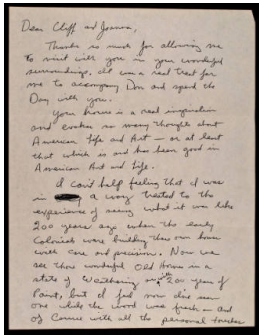 Dear Cliff and Joanna,
Thanks so much for allowing me
to visit with you in your wonderful
surroundings. It was a real treat for
me to accompany Don and spend the
Day with you.
Your home is a real inspiration
and evokes so many thoughts about
American Life and Art — or at least
that which is and has been good in
American Art and Life.
I can't help feeling that I was
in a way treated to the
experience of seeing what it was like
200 years ago when the early
Colonists were building their own homes
with care and precision. Now we
see those wonderful Old Homes in a
state of Weathering 200 years of
Paint, but I feel now I've seen
one while the wood was fresh — and
of Course with all the personal touches